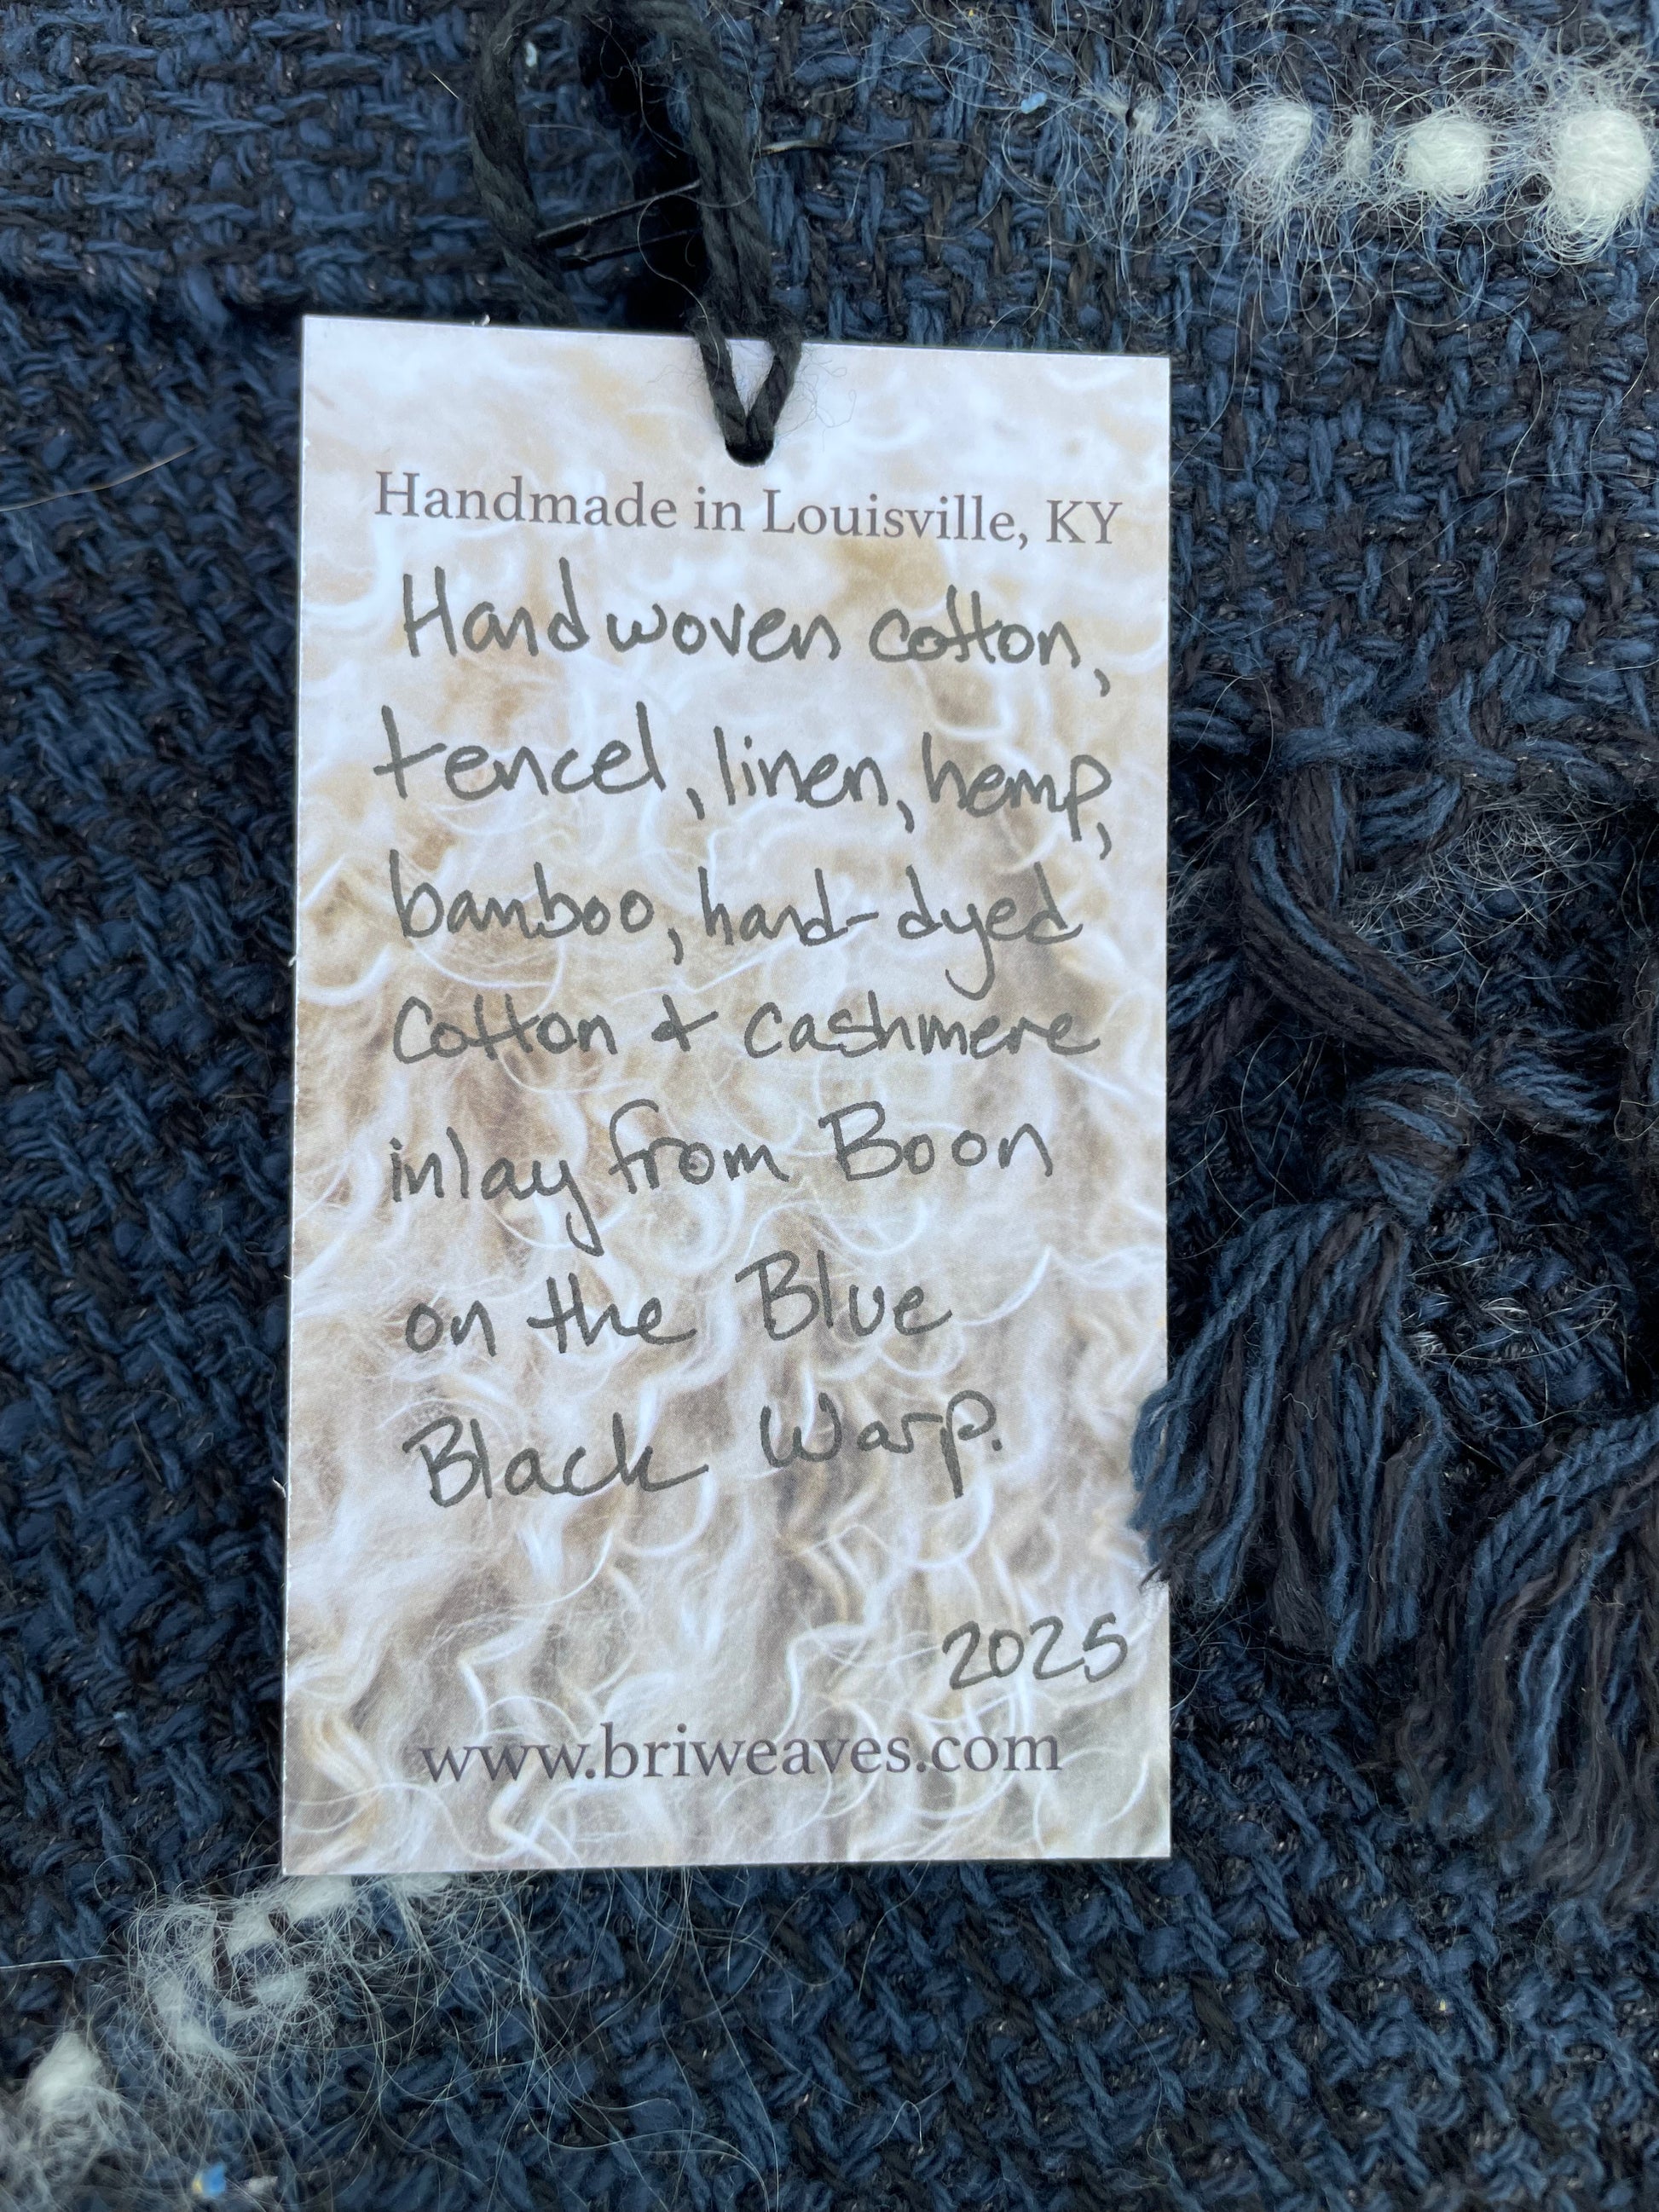 Handmade in Louisville, KY
Handwoven cotton,
tencel, linen, hemp,
bamboo, hand-dyed
Cotton & cashmere
inlay from Boon
on the Blue
Black Warp.
2025
www.briweaves.com